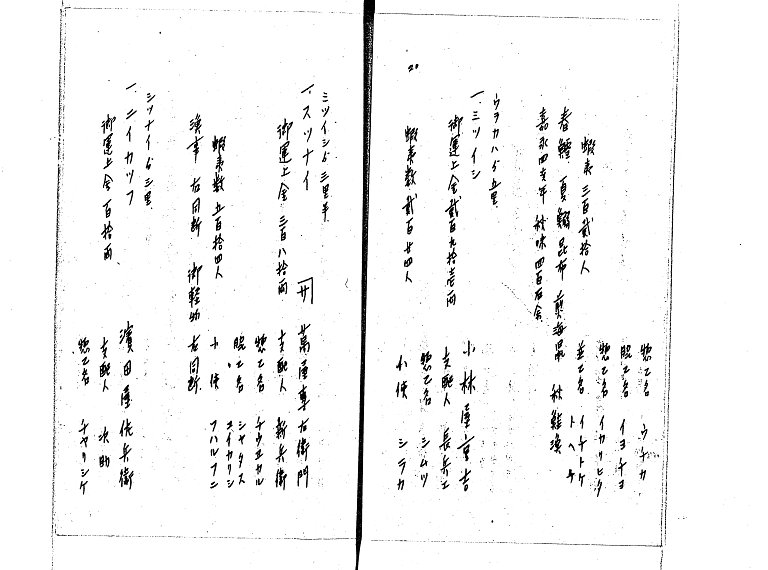 惣乙名 ウナカ
脇乙名 イヨチヨ
惣乙名 イカリヒタ
並乙名 イチトケ
トヘケ
蝦夷 三百貳拾人
春鰊 夏鯣 昆布 煎海鼠 秋鮭漁
嘉永四亥年 秋味四百石余
ウラカハゟ五里
一 ミツイシ
御運上金 貳百九拾壱両
小林屋重吉
支配人 長兵エ
惣乙名 シムツ
小使 シラカ
蝦夷数 貳百廿四人
20
ミツイシゟ三里半
一 スツナイ
御運上金 三百八拾両
萬屋専右衛門
支配人 新兵衛
惣乙名 チウエカル
脇乙名 シヤタス
〃 エイカリシ
小使 フハルフニ
蝦夷数 五百拾四人
漁事 右同断 御軽物 右同断
シツナイゟ三里
一 ニイカツフ
御運上金 百拾両
濱田屋佐兵衛
支配人 次助
惣乙名 チヤリシケ